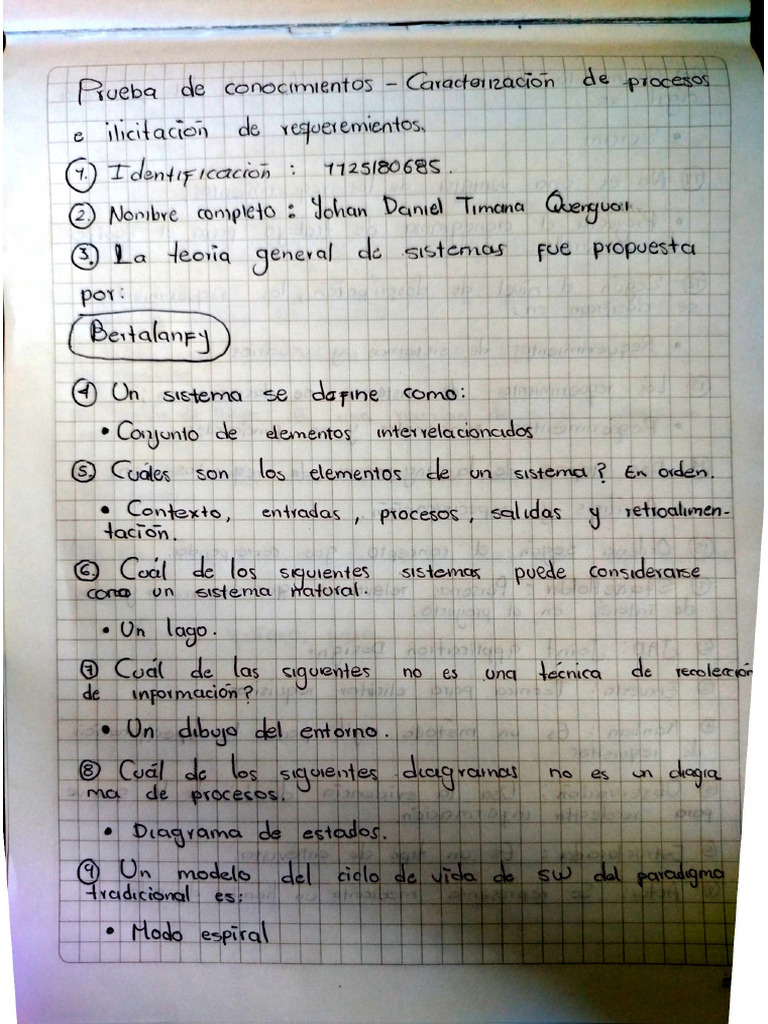 Prueba de conocimientos - Caracterización de procesos
e ilicitación de requeremientos.
1. Identificación : 1125180685.
2. Nombre completo : Yohan Daniel Timana
3. La teoria general de sistemas fue propuesta
por:
Bertalanfy
4 Un sistema se define como:
• Conjunto de elementos interrelacionados
5. Cuáles son los elementos de un sistema? En orden.
• Contexto, entradas, procesos, salidas y retroalimen-
tación.
6. Cuál de los siguientes sistemas puede considerarse
como un sistema natural.
• Un lago.
7 Cuál de las siguientes no es una técnica de recolección
de información?
• Un dibujo del entorno.
8 Cuál de los siguientes diagramas no es un diagra
ma de procesos.
• Diagrama de estados.
9 Un modelo del ciclo de vida de SW del paradigma
tradicional es:
• Modo espiral